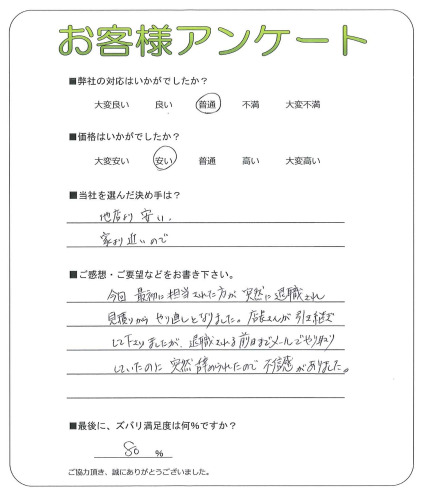 お客様アンケート
■弊社の対応はいかがでしたか？
大変良い 良い 普通 不満 大変不満
■価格はいかがでしたか？
大変安い 安い 普通 高い 大変高い
■当社を選んだ決め手は？
他店より 安い、
家より 近いので
■ご感想・ご要望などをお書き下さい。
今回 最初に担当された方が 突然に退職され
見積りから やり直しとなりました。店長さんが 引き継ぎ
して下さいましたが、退職される前日までメールでやり取り
していたのに 突然 辞められたので 不信感がありました。
■最後に、ズバリ満足度は何%ですか？
80 %
ご協力頂き、誠にありがとうございました。